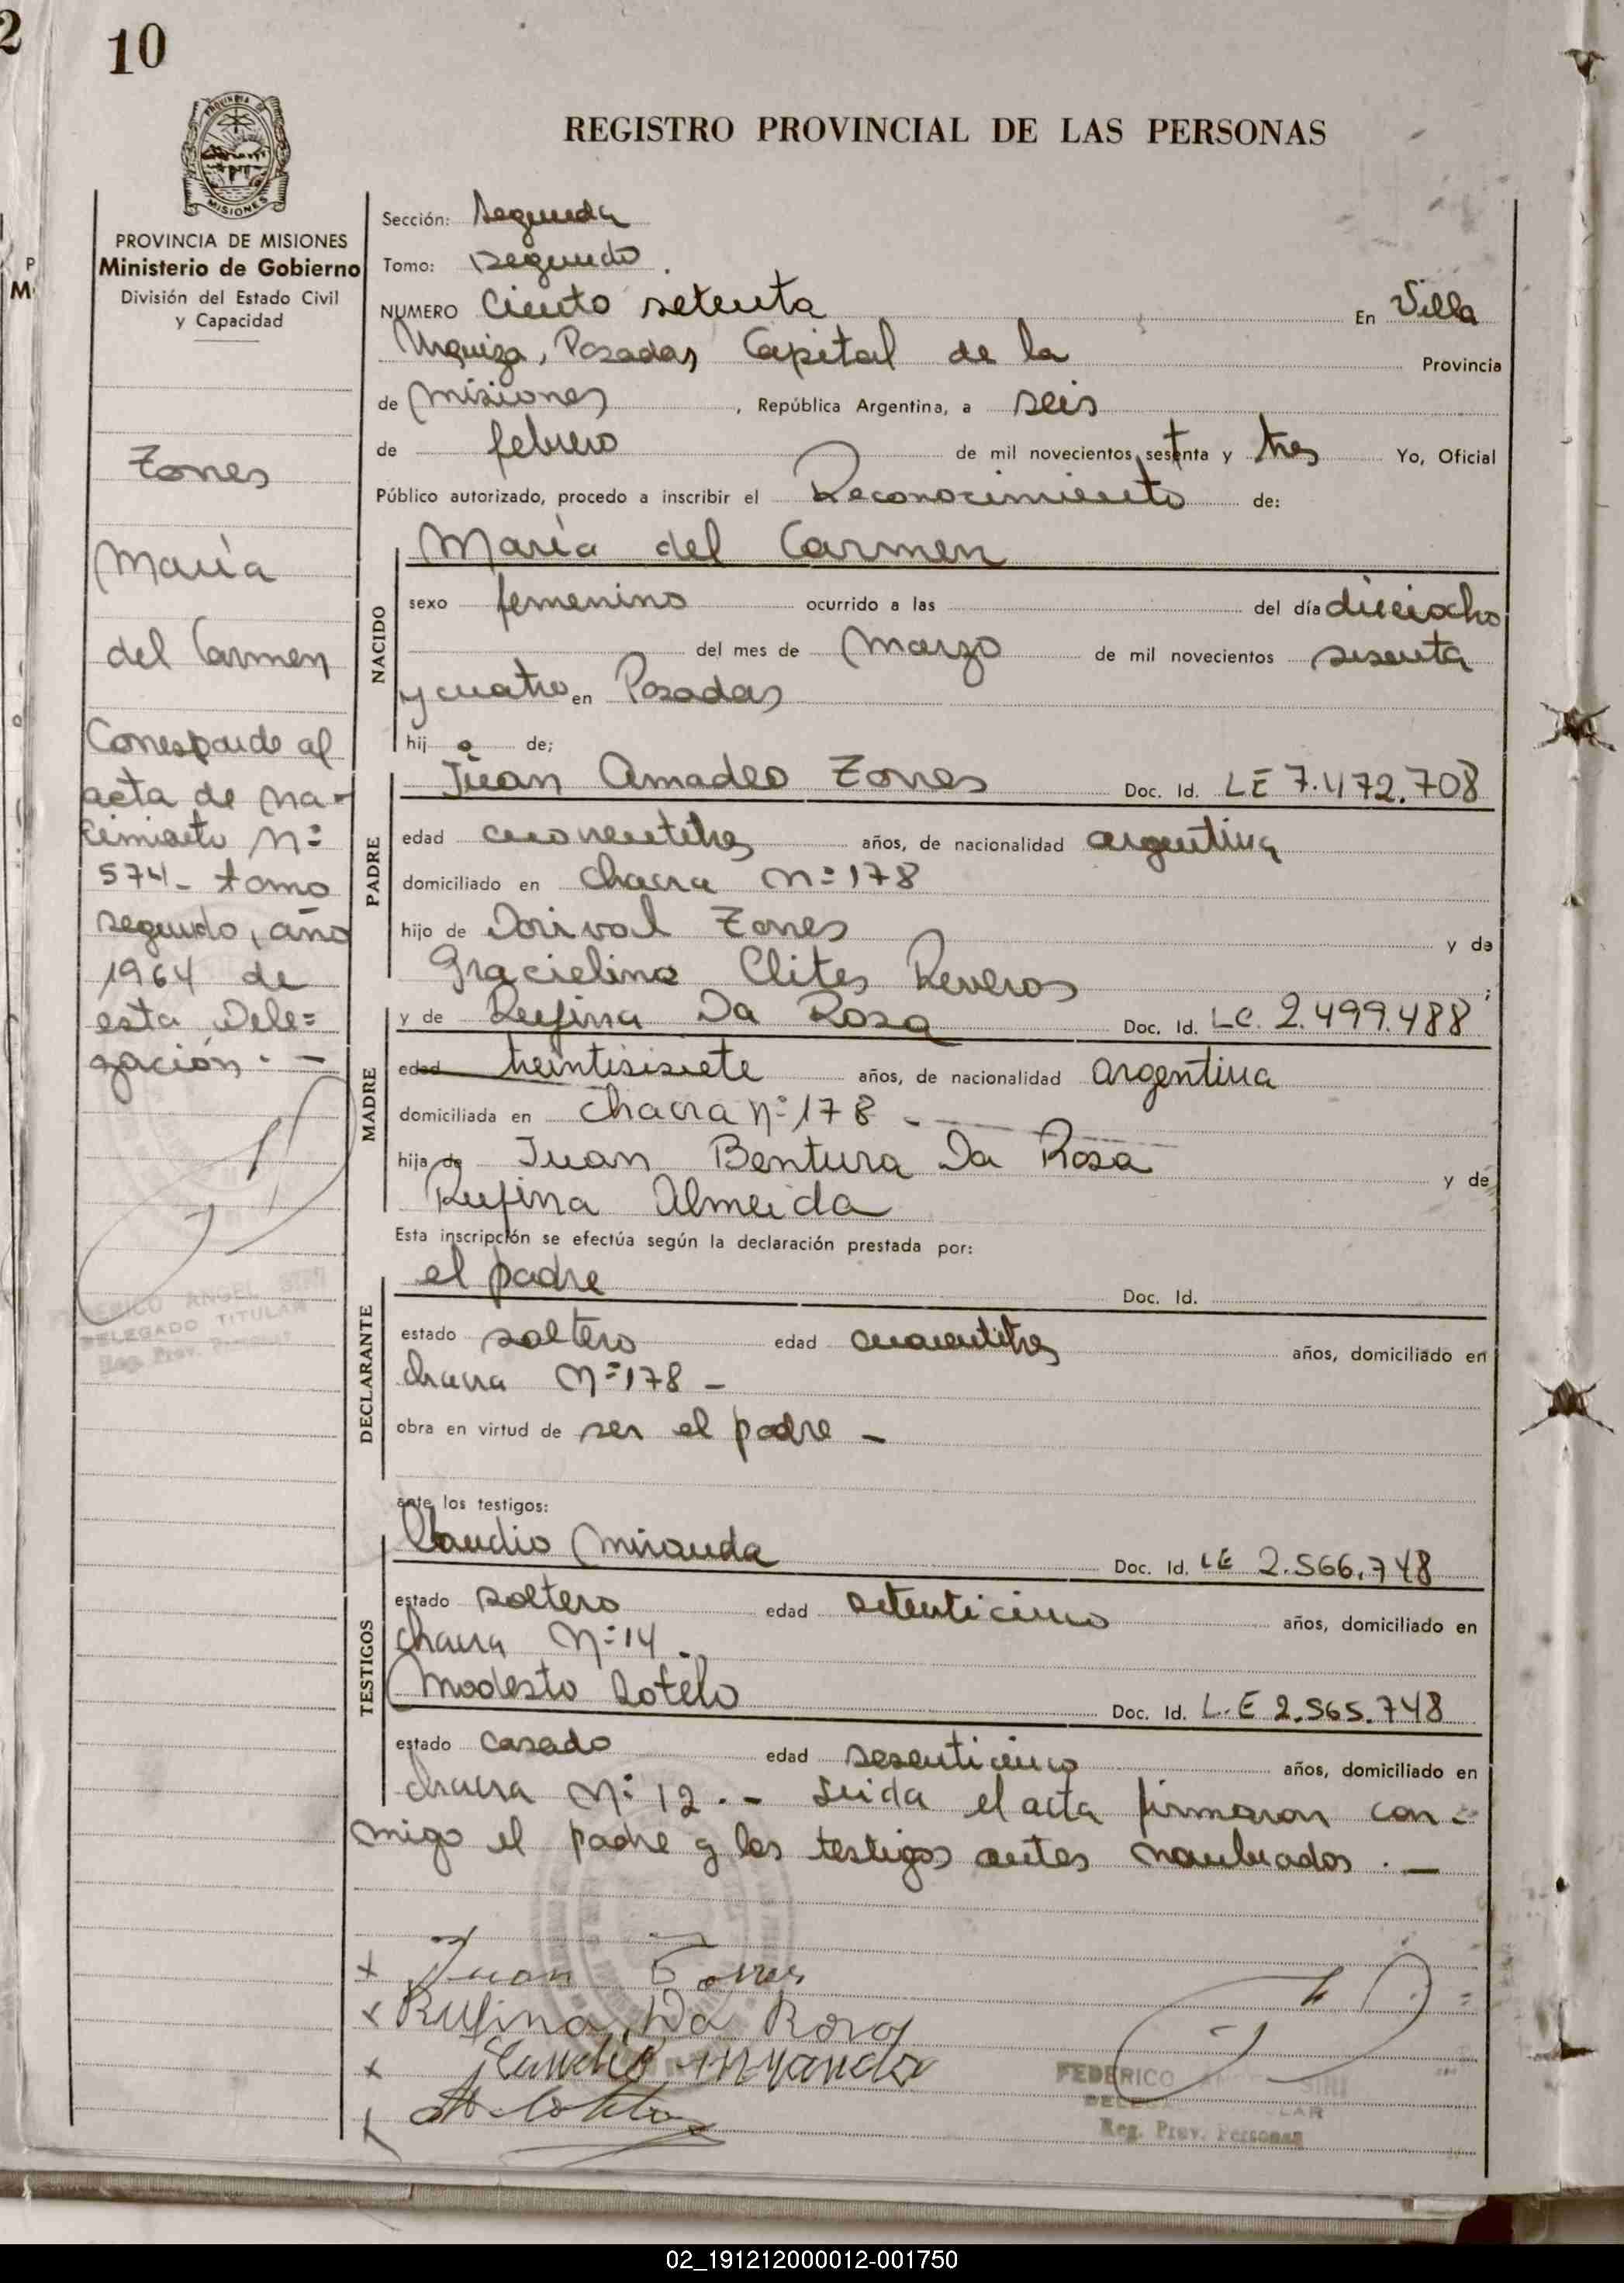 2
10
REGISTRO PROVINCIAL DE LAS PERSONAS
PROVINCIA DE MISIONES
Ministerio de Gobierno
División del Estado Civil
y Capacidad
Zorres
María
del Carmen
Corresponde al
acta de na-
cimiento Nº
574- tomo
segundo, año
1964 de
esta Dele=
gación.-
Sección: Segunda
Tomo: segundo
NUMERO Ciento setenta En Villa
Urquiza, Posadas, Capital de la Provincia
de Misiones, República Argentina, a seis
de febrero de mil novecientos setenta y tres Yo, Oficial
Público autorizado, procedo a inscribir el Reconocimiento de:
NACIDO
María del Carmen
sexo femenino ocurrido a las del día dieciocho
del mes de Marzo de mil novecientos sesenta
y cuatro en Posadas
hij a de;
PADRE
Juan Amadeo Zorres Doc. Id. LE 7.472.708
edad cuarentitres años, de nacionalidad argentina
domiciliado en chacra Nº 178
hijo de Dorival Zorres y de
Gracielina Clites Reveros;
MADRE
y de Rufina Da Rosa Doc. Id. LC. 2.499.488
edad treintisisiete años, de nacionalidad argentina
domiciliada en chacra Nº 178 -
hija de Juan Bentura Da Rosa y de
Rufina Almeida
Esta inscripción se efectúa según la declaración prestada por:
DECLARANTE
el padre Doc. Id.
estado soltero edad cuarentitres años, domiciliado en
chacra Nº 178 -
obra en virtud de ser el padre -
ante los testigos:
TESTIGOS
Claudio Miranda Doc. Id. LE 2.566.748
estado soltero edad setenticinco años, domiciliado en
chacra Nº 14.
Modesto Sotelo Doc. Id. L.E 2.565.748
estado casado edad sesenticinco años, domiciliado en
chacra Nº 12.- Leida el acta firmaron con=
migo el padre y los testigos antes nombrados.-
x Juan Torres
x Rufina Da Rosa
x Claudio Miranda
x
FEDERICO ANGEL SINI
DELEGADO TITULAR
Reg. Prov. Personas
02_191212000012-001750